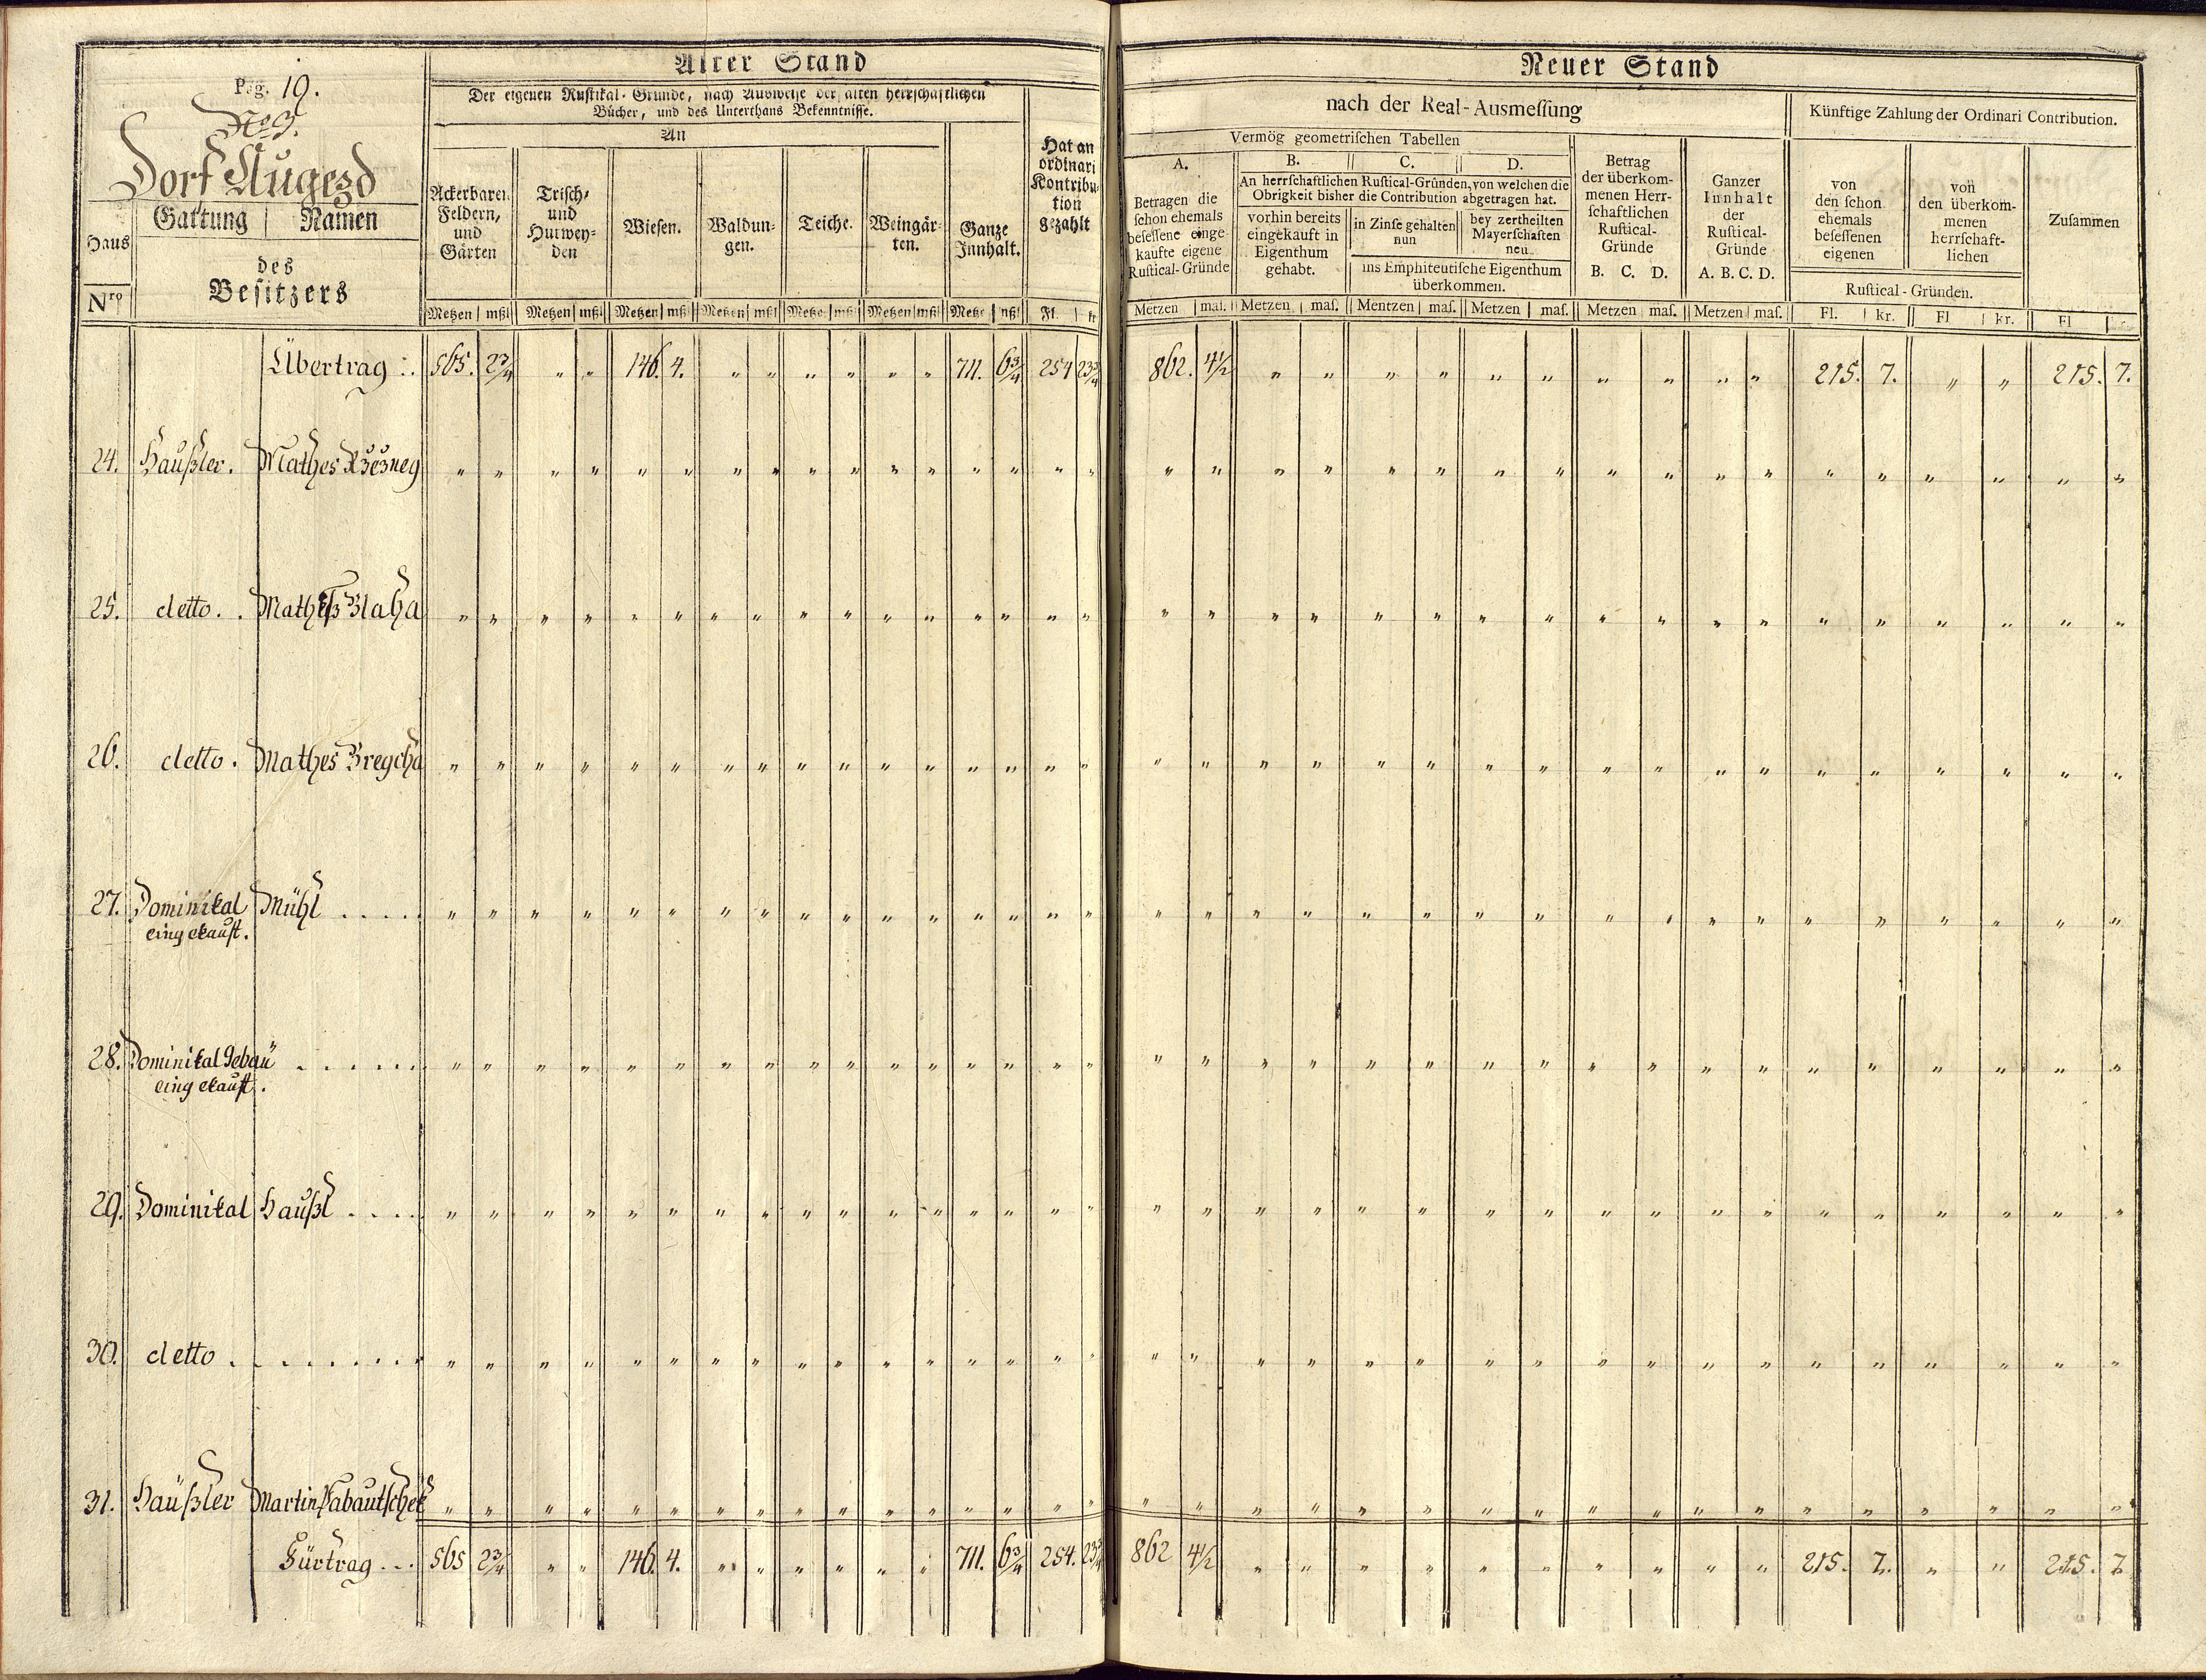 Alter Stand
Pag. 19.
No 3.
Dorf Augezd
Haus
Nro
Gattung | Namen
des
Besitzers
Der eigenen Rustikal-Gründe, nach Ausweise der alten herrschaftlichen
Bücher, und des Unterthans Bekenntnisse.
An
Ackerbaren
Feldern,
und
Gärten
Trisch-
und
Hutwey-
den
Wiesen.
Waldun-
gen.
Teiche.
Weingär-
ten.
Ganze
Innhalt.
Hat an
ordinari
Kontribu-
tion
gezahlt
Metzen | mßl Metzen | mßl Metzen | mßl Metzen | mßl Metze | mßl Metzen | mßl Metze | mßl Fl. | kr
Neuer Stand
nach der Real-Ausmessung
Künftige Zahlung der Ordinari Contribution.
Vermög geometrischen Tabellen
A.
Betragen die
schon ehemals
besessene einge-
kaufte eigene
Rustical-Gründe
B. C. D.
An herrschaftlichen Rustical-Gründen, von welchen die
Obrigkeit bisher die Contribution abgetragen hat.
vorhin bereits
eingekauft in
Eigenthum
gehabt.
in Zinse gehalten
nun
bey zertheilten
Mayerschaften
neu
ins Emphiteutische Eigenthum
überkommen.
Betrag
der überkom-
menen Herr-
schaftlichen
Rustical-
Gründe
B. C. D.
Ganzer
Innhalt
der
Rustical-
Gründe
A. B. C. D.
von
den schon
ehemals
besessenen
eigenen
von
den überkom-
menen
herrschaft-
lichen
Rustical-Gründen.
Zusammen
Metzen | mas. Metzen | mas. Mentzen | mas. Metzen | mas. Metzen | mas. Metzen | mas. Fl. | kr. Fl | kr. Fl
Übertrag :. 565. 2 3/4 " " 146. 4. " " " " " " 711. 6 3/4 254 23 3/4 862. 4 1/2 " " " " " " " " " " 215. 7. " " 215. 7.
24. Haußler. Mathes Rzezneg " " " " " " " " " " " " " " " " " " " " " " " " " " " " " " " " " "
25. detto. . Mathes Blaha " " " " " " " " " " " " " " " " " " " " " " " " " " " " " " " " " "
26. detto. Mathes Bregcha " " " " " " " " " " " " " " " " " " " " " " " " " " " " " " " " " "
27. Dominikal Mühl . . . . " " " " " " " " " " " " " " " " " " " " " " " " " " " " " " " " " "
eingekauft.
28. Dominikal Gebäu . . . . . . " " " " " " " " " " " " " " " " " " " " " " " " " " " " " " " " "
eingekauft.
29. Dominikal Haußl . . . . " " " " " " " " " " " " " " " " " " " " " " " " " " " " " " " " " "
30. detto . . . . . . . . . " " " " " " " " " " " " " " " " " " " " " " " " " " " " " " " " " "
31. Haüßler Martin " " " " " " " " " " " " " " " " " " " " " " " " " " " " " " " " " "
Fürtrag . . . 565 2 3/4 " " 146. 4. " " " " " " 711. 6 3/4 254. 23 3/4 862 4 1/2 " " " " " " " " " " 215. 7. " " 215. 7